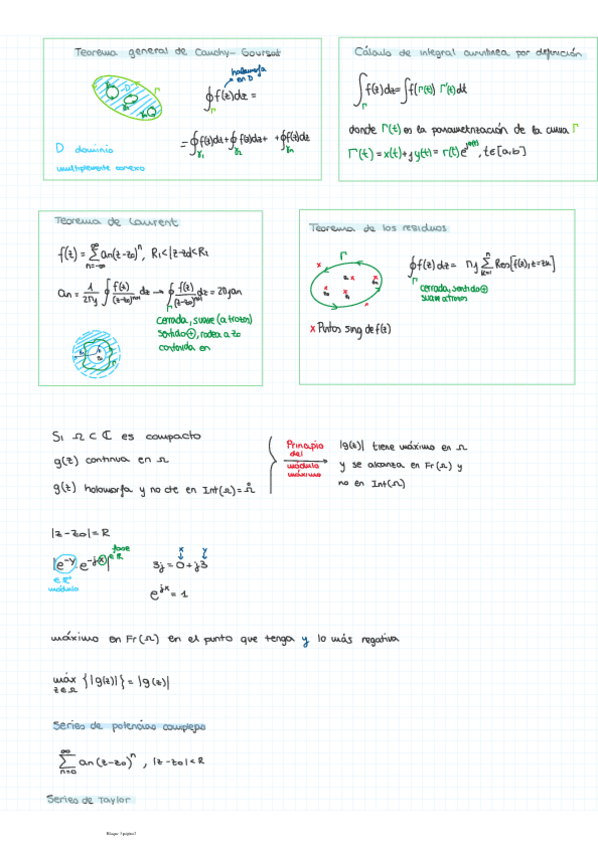 Teorema general de Cauchy-Goursat
holomorfa en D
∮f(z)dz =
Γ
= ∮f(z)dz + ∮f(z)dz + + ∮f(z)dz
γ₁ γ₂ γₙ
D dominio
multiplemente conexo
Cálculo de integral curvilínea por definición
∫f(z)dz = ∫f(Γ(t)) Γ'(t)dt
Γ
donde Γ(t) es la parametrización de la curva Γ
Γ(t) = x(t)+jy(t) = r(t)e^jθ(t), t∈[a,b]
Teorema de Laurent
f(z) = ∑ an(z-z₀)ⁿ, R₁<|z-z₀|<R₂
n=-∞
cerrada, suave (a trozos)
sentido ⊕, rodea a z₀
contenida en
Teorema de los residuos
Γ
cerrada, sentido ⊕
suave a trozos
x Puntos sing de f(z)
Si Ω ⊂ ℂ es compacto
g(z) continua en Ω
g(z) holomorfa y no cte en Int(Ω) = Ω̊
Principio del módulo máximo
|g(z)| tiene máximo en Ω
y se alcanza en Fr(Ω) y
no en Int(Ω)
|z-z₀| = R
fase ∈ ℝ
|e^-y · e^-jx|
∈ ℝ⁺
módulo
x y
3j = 0+j3
e^jx = 1
máximo en Fr(Ω) en el punto que tenga y lo más negativa
máx {|g(z)|} = |g(z)|
z∈Ω
Series de potencias complejas
∞
∑ an(z-z₀)ⁿ, |z-z₀|<R
n=0
Series de Taylor